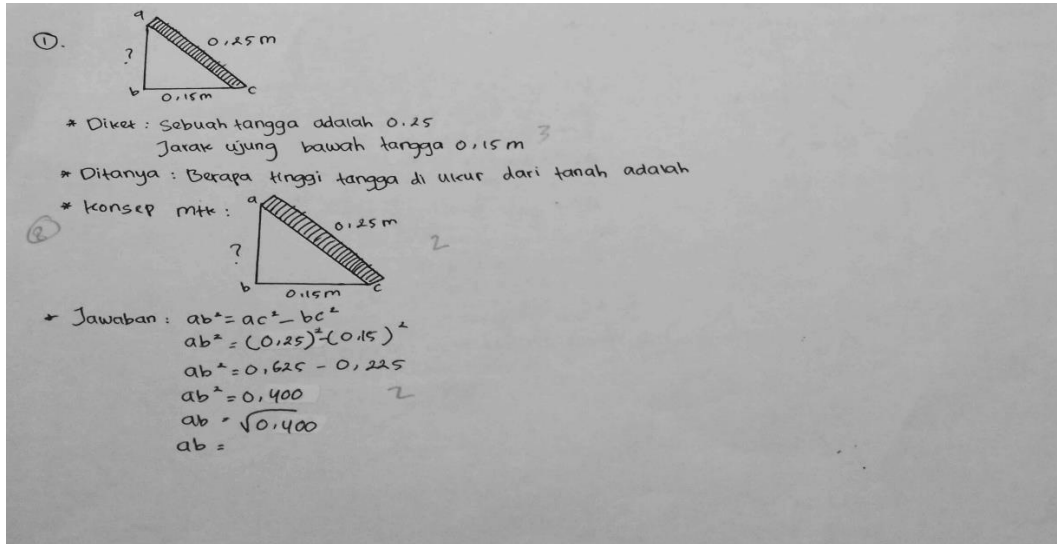 ①.
a
0,25 m
?
b
0,15m
c
* Diket : Sebuah tangga adalah 0.25
Jarak ujung bawah tangga 0,15 m
3
* Ditanya : Berapa tinggi tangga di ukur dari tanah adalah
* Konsep mtk :
a
0,25 m
2
?
b
0.15m
c
* Jawaban : ab² = ac² - bc²
ab² = (0,25)²-(0,15)²
ab² = 0,625 - 0,225
ab² = 0,400
2
ab = √0,400
ab =